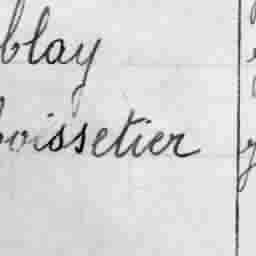 blay
boissetier